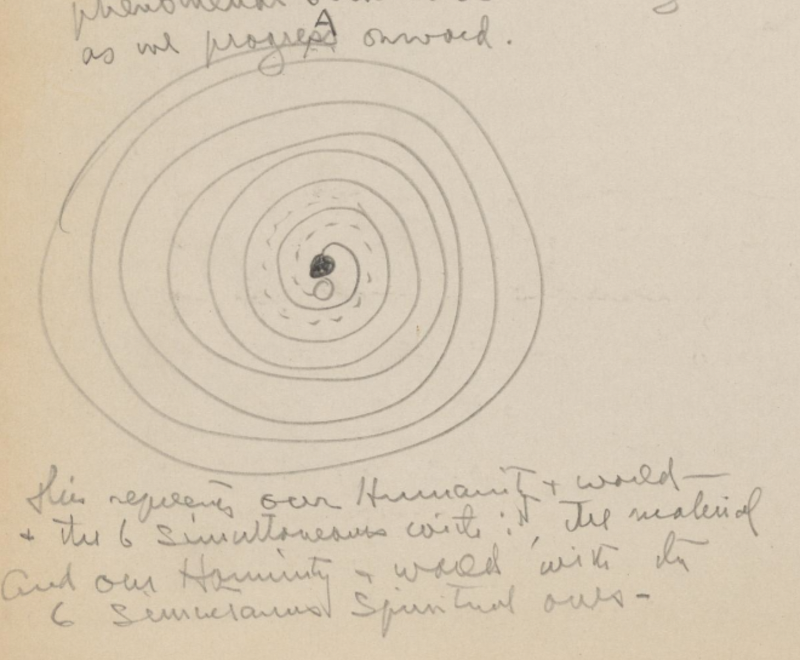 phenomenal
as we progress onward.
A
This repeents our Humanity + world—
+ the 6 Simultaneous with it, The material
and our Huminty + world with its
6 Simultanus Spiritual ones-